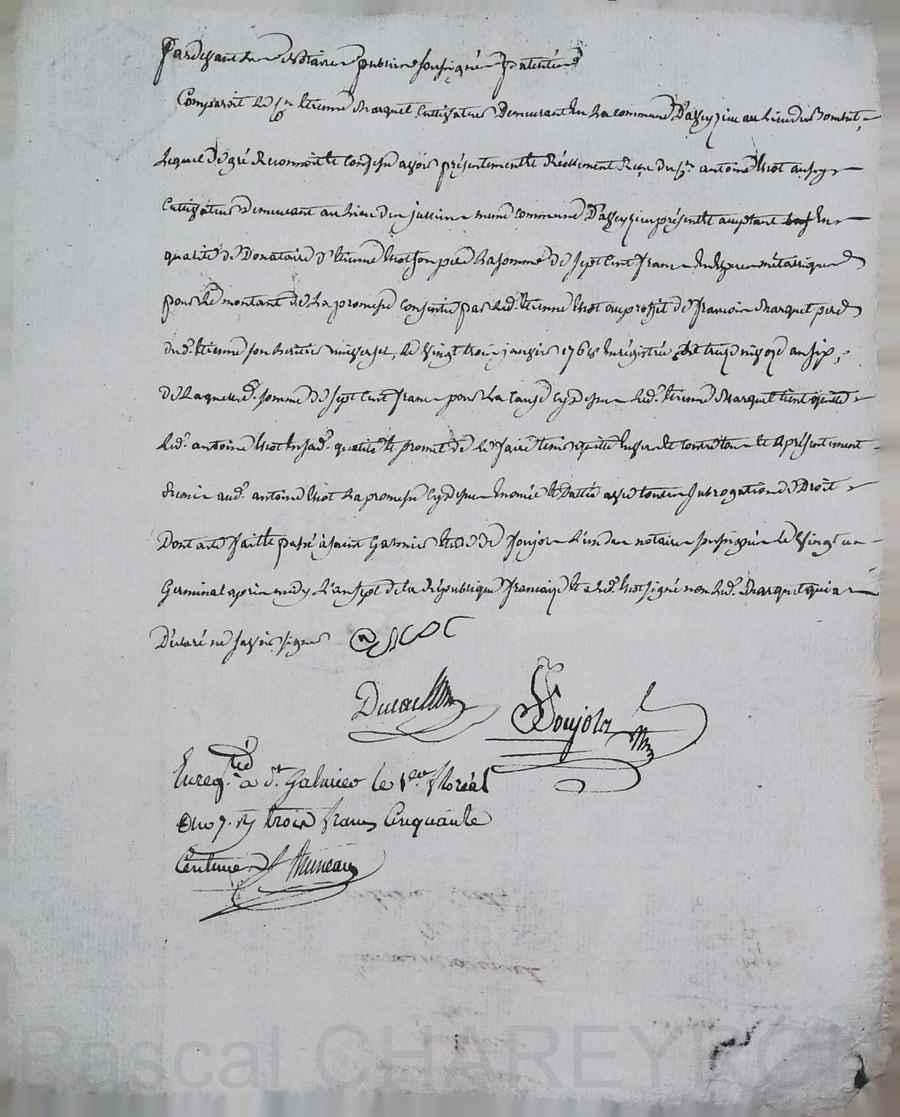 Pardevant le Notaire public soussigné patenté
Comparoit le Cn Etienne Marquet Cultivateur Demeurant en la commune D'aveyzieu au lieu du
Lequel de gré Reconnoit et Confesse avoir présentement et Réellement Reçu du Cn antoine Viot aussy
Cultivateur demeurant au lieu de meme commune D'aveyzieu présent et acceptant en
qualité de Donataire d'Etienne Viot son pere la somme de Sept Cent francs En Espece métallique
pour le montant de la promesse Consentie par led. Etienne Viot au proffit de francois Marquet pere
dud. Etienne son heritier universel, le vingt trois janvier 1768 Enregistrée le treize nivose an six,
de laquelle d. somme de Sept Cent francs pour la Cause cy dessus led. Etienne Marquet tient quitte
led. antoine Viot En sad. qualité et promet de le faire tenir quitte Envers et contre tous et a présentement
Remis aud. antoine Viot la promesse cy dessus Enoncée et Dattée avec toute Subrogation de Droit
Dont acte fait et passé à Saint Galmier Etude de Soujol l'un des notaires soussignés le Vingt un
Germinal après midy L'an Sept de la République francaise et a led. Viot signé non led. Marquet qui a
Déclaré ne savoir signer
a Viot
Soujol
Enregtré à St Galmier le 1er floréal
an 7. R trois francs Cinquante
Centimes
Pascal CHAREYRON